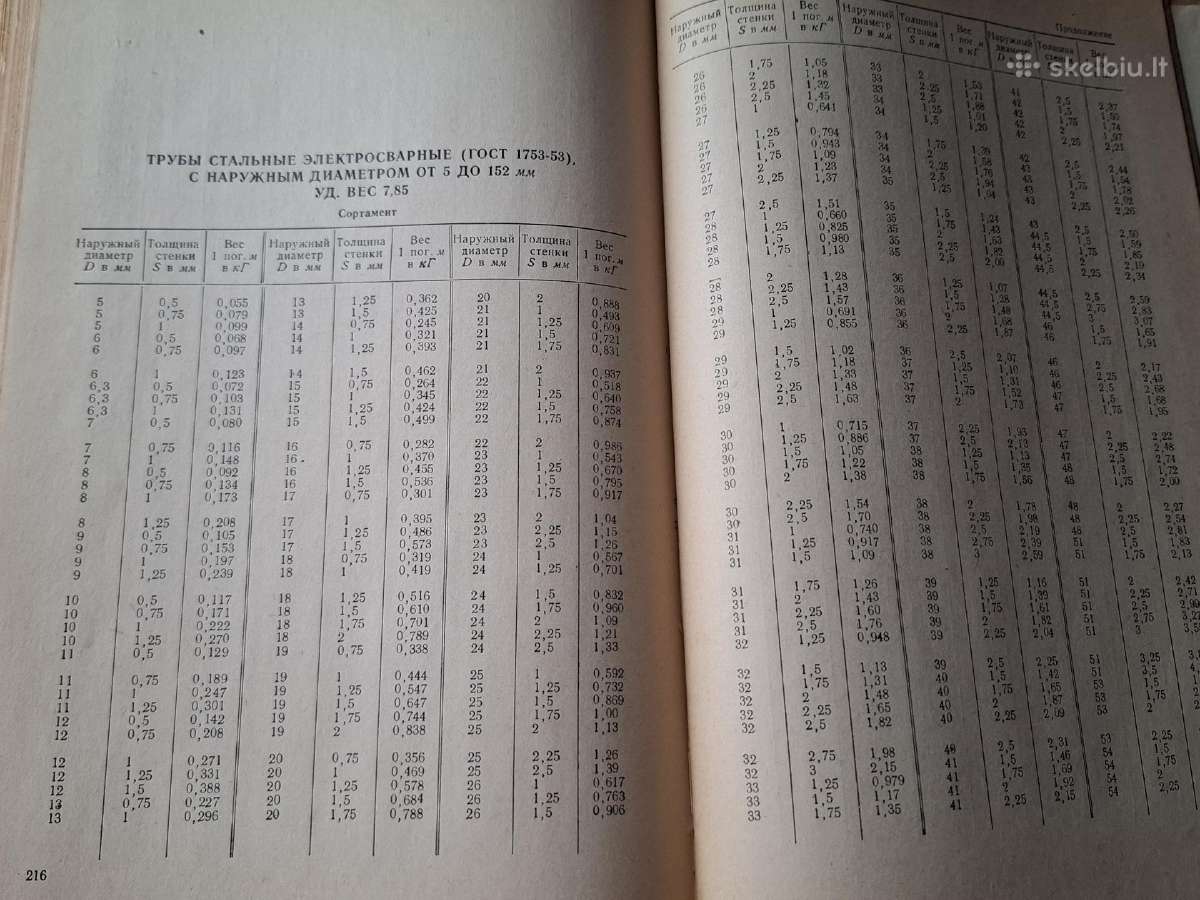 ТРУБЫ СТАЛЬНЫЕ ЭЛЕКТРОСВАРНЫЕ (ГОСТ 1753-53),
С НАРУЖНЫМ ДИАМЕТРОМ ОТ 5 ДО 152 мм
УД. ВЕС 7,85
Сортамент
Наружный диаметр D в мм Толщина стенки S в мм Вес 1 пог. м в кГ Наружный диаметр D в мм Толщина стенки S в мм Вес 1 пог. м в кГ Наружный диаметр D в мм Толщина стенки S в мм Вес 1 пог. м в кГ
5 0,5 0,055 13 1,25 0,362 20 2 0,888
5 0,75 0,079 13 1,5 0,425 21 1 0,493
5 1 0,099 14 0,75 0,245 21 1,25 0,609
6 0,5 0,068 14 1 0,321 21 1,5 0,721
6 0,75 0,097 14 1,25 0,393 21 1,75 0,831
6 1 0,123 14 1,5 0,462 21 2 0,937
6,3 0,5 0,072 15 0,75 0,264 22 1 0,518
6,3 0,75 0,103 15 1 0,345 22 1,25 0,640
6,3 1 0,131 15 1,25 0,424 22 1,5 0,758
7 0,5 0,080 15 1,5 0,499 22 1,75 0,874
7 0,75 0,116 16 0,75 0,282 22 2 0,986
7 1 0,148 16 1 0,370 23 1 0,543
8 0,5 0,092 16 1,25 0,455 23 1,25 0,670
8 0,75 0,134 16 1,5 0,536 23 1,5 0,795
8 1 0,173 17 0,75 0,301 23 1,75 0,917
8 1,25 0,208 17 1 0,395 23 2 1,04
9 0,5 0,105 17 1,25 0,486 23 2,25 1,15
9 0,75 0,153 17 1,5 0,573 23 2,5 1,26
9 1 0,197 18 0,75 0,319 24 1 0,567
9 1,25 0,239 18 1 0,419 24 1,25 0,701
10 0,5 0,117 18 1,25 0,516 24 1,5 0,832
10 0,75 0,171 18 1,5 0,610 24 1,75 0,960
10 1 0,222 18 1,75 0,701 24 2 1,09
10 1,25 0,270 18 2 0,789 24 2,25 1,21
11 0,5 0,129 19 0,75 0,338 24 2,5 1,33
11 0,75 0,189 19 1 0,444 25 1 0,592
11 1 0,247 19 1,25 0,547 25 1,25 0,732
11 1,25 0,301 19 1,5 0,647 25 1,5 0,869
12 0,5 0,142 19 1,75 0,744 25 1,75 1,00
12 0,75 0,208 19 2 0,838 25 2 1,13
12 1 0,271 20 0,75 0,356 25 2,25 1,26
12 1,25 0,331 20 1 0,469 25 2,5 1,39
12 1,5 0,388 20 1,25 0,578 26 1 0,617
13 0,75 0,227 20 1,5 0,684 26 1,25 0,763
13 1 0,296 20 1,75 0,788 26 1,5 0,906
216
Продолжение
Наружный диаметр D в мм Толщина стенки S в мм Вес 1 пог. м в кГ Наружный диаметр D в мм Толщина стенки S в мм Вес 1 пог. м в кГ Наружный диаметр Толщина Вес
skelbiu.lt
26 1,75 1,05 33 2 1,53 41 2,5 2,37
26 2 1,18 33 2,25 1,71 42
26 2,25 1,32 34 2,5 1,88 42
26 2,5 1,45 34 42
27 1 0,641 34 1,5 1,20 42 2,25 2,21
27 1,25 0,794 34 1,75 1,39 42 2,5 2,44
27 1,5 0,943 34 2 1,58 43 1,5 1,54
27 1,75 1,09 34 2,25 1,76 43 1,75 1,78
27 2 1,23 34 2,5 1,94 43 2 2,02
27 2,25 1,37 35 1,25 1,04 43 2,25 2,26
27 2,5 1,51 35 1,5 1,24 43 2,5 2,50
28 1 0,660 35 1,75 1,43 44,5 1,5 1,59
28 1,25 0,825 35 2 1,63 44,5 1,75 1,85
28 1,5 0,980 35 2,25 1,82 44,5 2 2,19
28 1,75 1,13 35 2,5 2,00 44,5 2,25 2,34
28 2 1,28 36 1,25 1,07 44,5 2,5 2,59
28 2,25 1,43 36 1,5 1,28 44,5 2,75 2,83
28 2,5 1,57 36 1,75 1,48 44,5 3 3,07
29 1 0,691 36 2 1,68 46 1,5 1,65
29 1,25 0,855 36 2,25 1,87 46 1,75 1,91
29 1,5 1,02 36 2,5 2,07 46 2 2,17
29 1,75 1,18 37 1,25 1,10 46 2,25 2,43
29 2 1,33 37 1,5 1,31 46 2,5 2,68
29 2,25 1,48 37 1,75 1,52 47 1,5 1,68
29 2,5 1,63 37 2 1,73 47 1,75 1,95
30 1 0,715 37 2,25 1,93 47 2 2,22
30 1,25 0,886 37 2,5 2,13 47 2,25 2,48
30 1,5 1,05 38 1,25 1,13 47 2,5 2,74
30 1,75 1,22 38 1,5 1,35 48 1,5 1,72
30 2 1,38 38 1,75 1,56 48 1,75 2,00
30 2,25 1,54 38 2 1,78 48 2 2,27
30 2,5 1,70 38 2,25 1,98 48 2,25 2,54
31 1 0,740 38 2,5 2,19 48 2,5 2,81
31 1,25 0,917 38 2,75 2,39 51 1,5 1,83
31 1,5 1,09 38 3 2,59 51 1,75 2,13
31 1,75 1,26 39 1,25 1,16 51 2 2,42
31 2 1,43 39 1,5 1,39 51 2,25 2,71
31 2,25 1,60 39 1,75 1,61 51 2,5
31 2,5 1,76 39 2 1,82 51 2,75
32 1,25 0,948 39 2,25 2,04 51 3
32 1,5 1,13 39 2,5 2,25 51 3,25
32 1,75 1,31 40 1,5 1,42 51 3,5
32 2 1,48 40 1,75 1,65 53 1,5
32 2,25 1,65 40 2 1,87 53 1,75
32 2,5 1,82 40 2,25 2,09 53 2
32 2,75 1,98 40 2,5 2,31 53 2,25
32 3 2,15 41 1,5 1,46 54 1,5
33 1,25 0,979 41 1,75 1,69 54 1,75
33 1,5 1,17 41 2 1,92 54 2
33 1,75 1,35 41 2,25 2,15 54 2,25